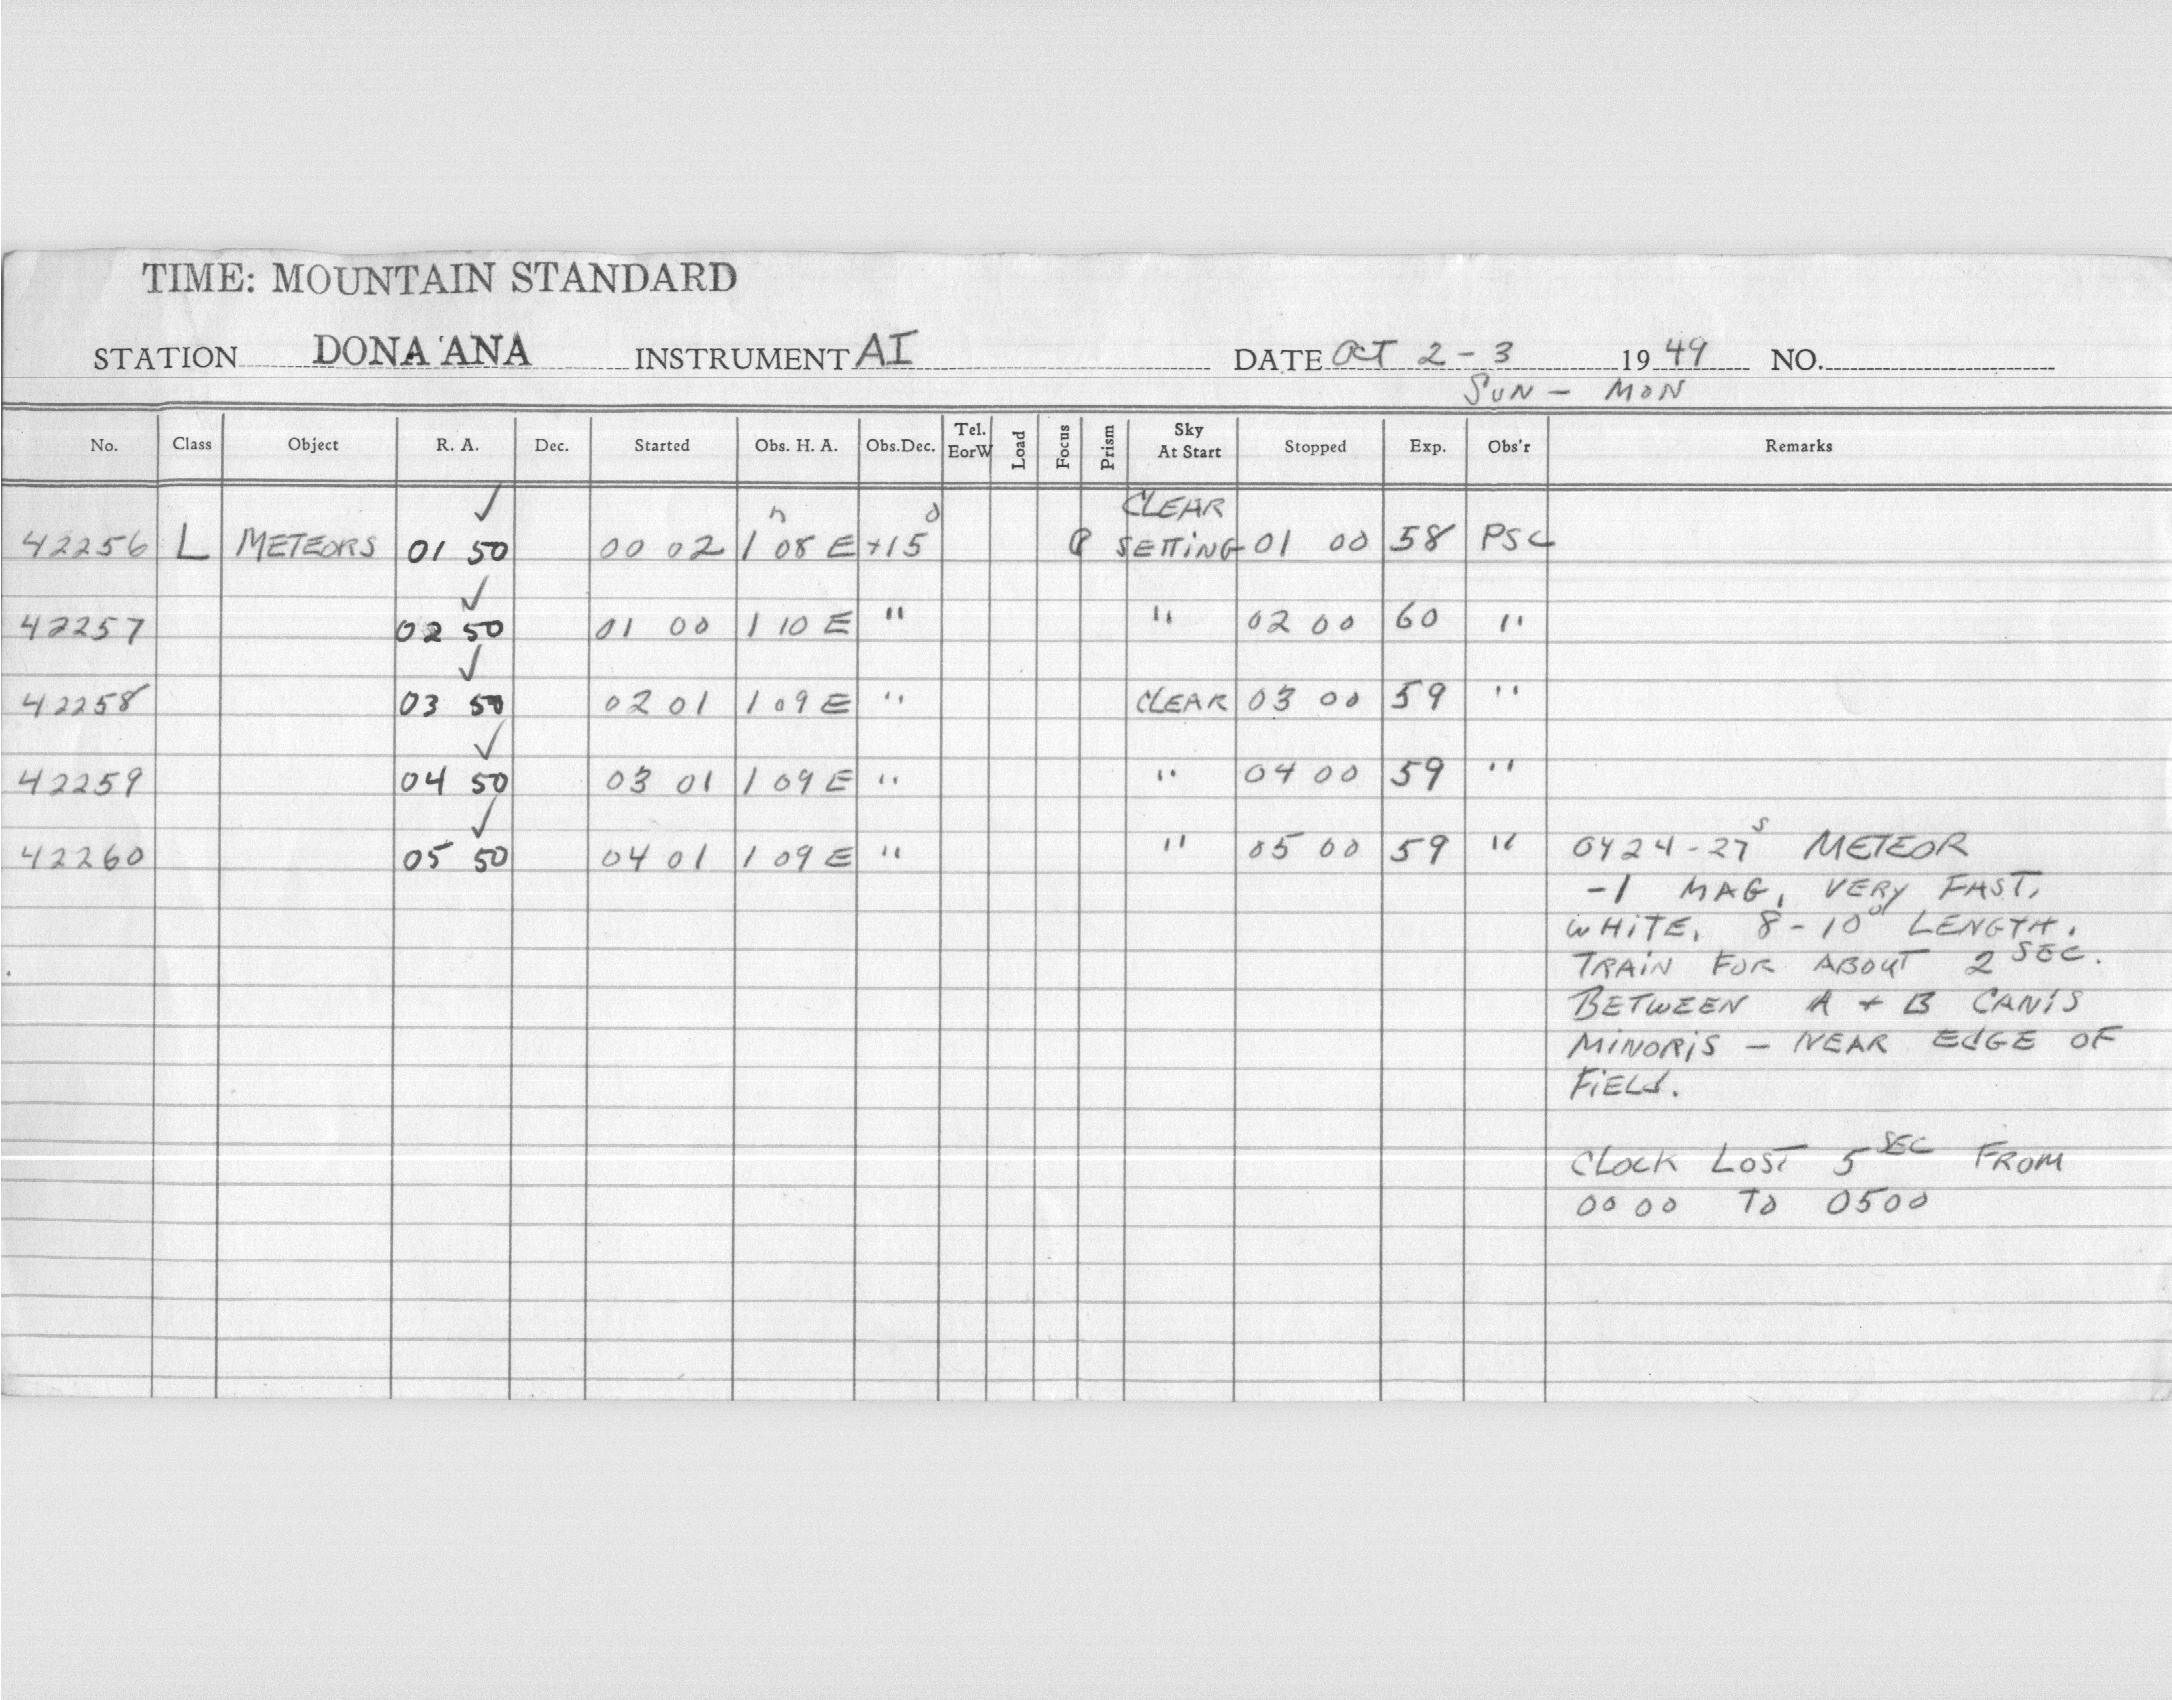 TIME: MOUNTAIN STANDARD
STATION DONA ANA INSTRUMENT AI DATE OCT 2 - 3 1949 NO.
SUN - MON
No. Class Object R. A. Dec. Started Obs. H. A. Obs.Dec. Tel. EorW Load Focus Prism Sky At Start Stopped Exp. Obs'r Remarks
✓ CLEAR
42256 L METEORS 01 50 00 02 1 h 08 E +15 o SETTING 01 00 58 PSC
✓
42257 02 50 01 00 1 10 E " " 02 00 60 "
✓
42258 03 50 02 01 1 09 E " CLEAR 03 00 59 "
✓
42259 04 50 03 01 1 09 E " " 04 00 59 "
✓
42260 05 50 04 01 1 09 E " " 05 00 59 " 0424-27 s METEOR
-1 MAG, VERY FAST,
WHITE, 8-10° LENGTH.
TRAIN FOR ABOUT 2 SEC.
BETWEEN A + B CANIS
MINORIS - NEAR EDGE OF
FIELD.
CLOCK LOST 5 SEC FROM
0000 TO 0500